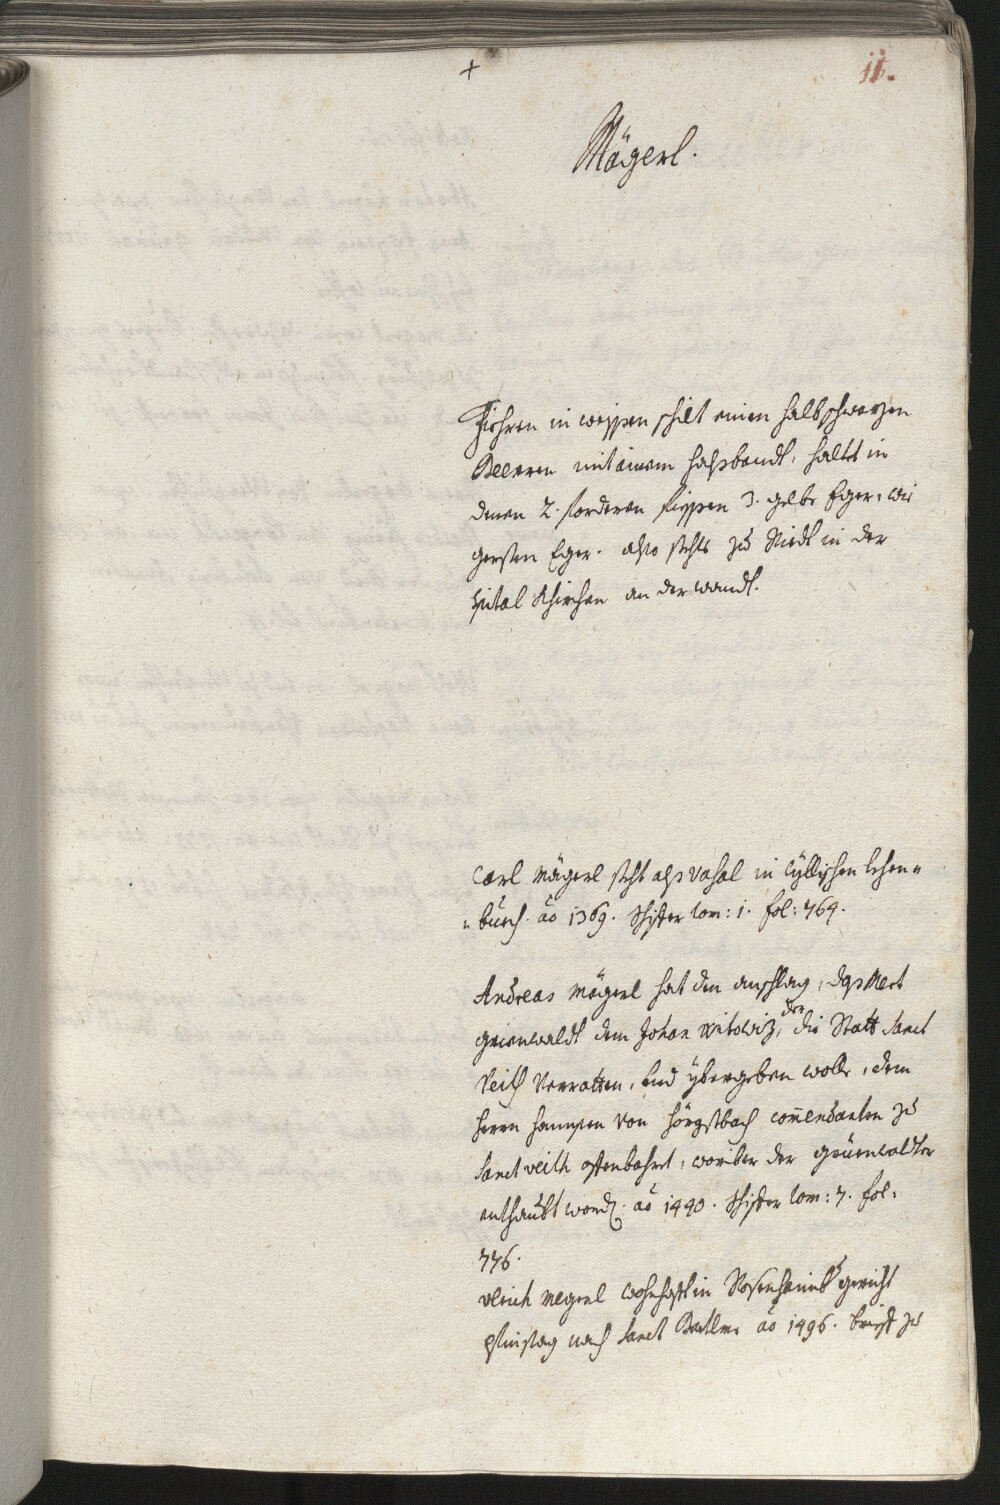 +
ii.
Mägerl.
Fiehren in weissen schilt einen halb schwarzen
Beeren mit einem halßbandt, haltt in
denen 2. fordern fiessen 3. gelbe Eger, wie
gersten Eger. also stehts zu Riedt in der
spital Khirchen an der wandt.
Carl Mägerl steht alß Vasal in Cyllischen lehen=
=buech. ao 1369. Schifer tom: 1. fol: 769.
Andreas Mägerl hat den anschlag, daß Mert
grienwaldt dem Johan Witowiz, der die Statt Sanct
Veith Verratten, und ybergeben wolle, dem
herrn hannsen von Hörgstbach com̄endanten zu
Sanct Veith offenbahrt, worüber der grüenwaldter
enthaubt word. ao 1440. Schifer tom: 7. fol.
776.
Ulrich Megerl wohnhafft in Rosenheimb gericht
Pfinstag nach Sanct Bartlme ao 1496. brieff zu